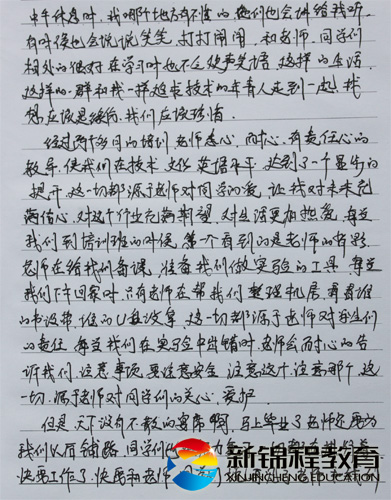 中午休息时，我哪个地方有不懂的，他们也会讲给我听，
有时候也会说说笑笑，打打闹闹，和老师，同学们
相处的很好，在学习时也不乏欢声笑语，这样的生活，
这样的一群和我一样追求技术的年青人走到一起，我
想应该是缘分，我们应该珍惜。
经过两个多月的培训，老师悉心，耐心，有责任心的
教导，使我们在技术，文化，英语水平，达到了一个显著的
提升，这一切都源于老师对同学的爱，让我对未来充
满信心，对这个行业充满希望，对生活更加热爱，每当
我们到培训班的时候，第一个看到的是老师的背影，
老师在给我们备课，准备我们做实验的工具，每当
我们下午回家时，只有老师在帮我们整理机房，看看谁
的书没带，谁的U盘没拿，这一切都源于老师对学生们
的责任，每当我们在实验中出错时，老师会耐心的告
诉我们，注意事项，要注意安全，注意这个，注意那个，这
一切，源于老师对同学们的关心，爱护。
但是，天下没有不散的宴席啊，马上毕业了，老师还要为
我们以后铺路，同学们
快要工作了，快要和老师
新锦程教育